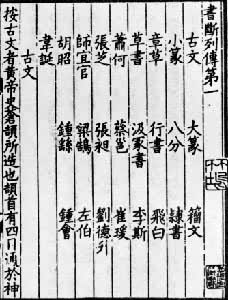 書斷列傳第一
古文 大篆 籀文
小篆 八分 隸書
章草 行書 飛白
草書 汲冢書 李斯
蕭何 蔡邕 崔瑗
張芝 張昶 劉德升
師宜官 梁鵠 左伯
胡昭 鍾繇 鍾會
韋誕
古文
按古文者黃帝史蒼頡所造也頡首有四目通於神